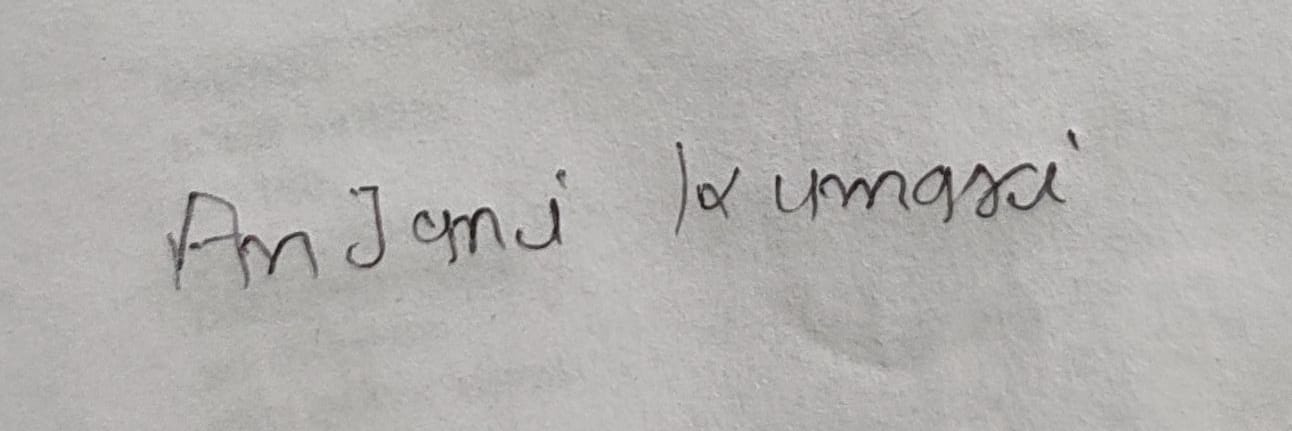 AnJani Kumari